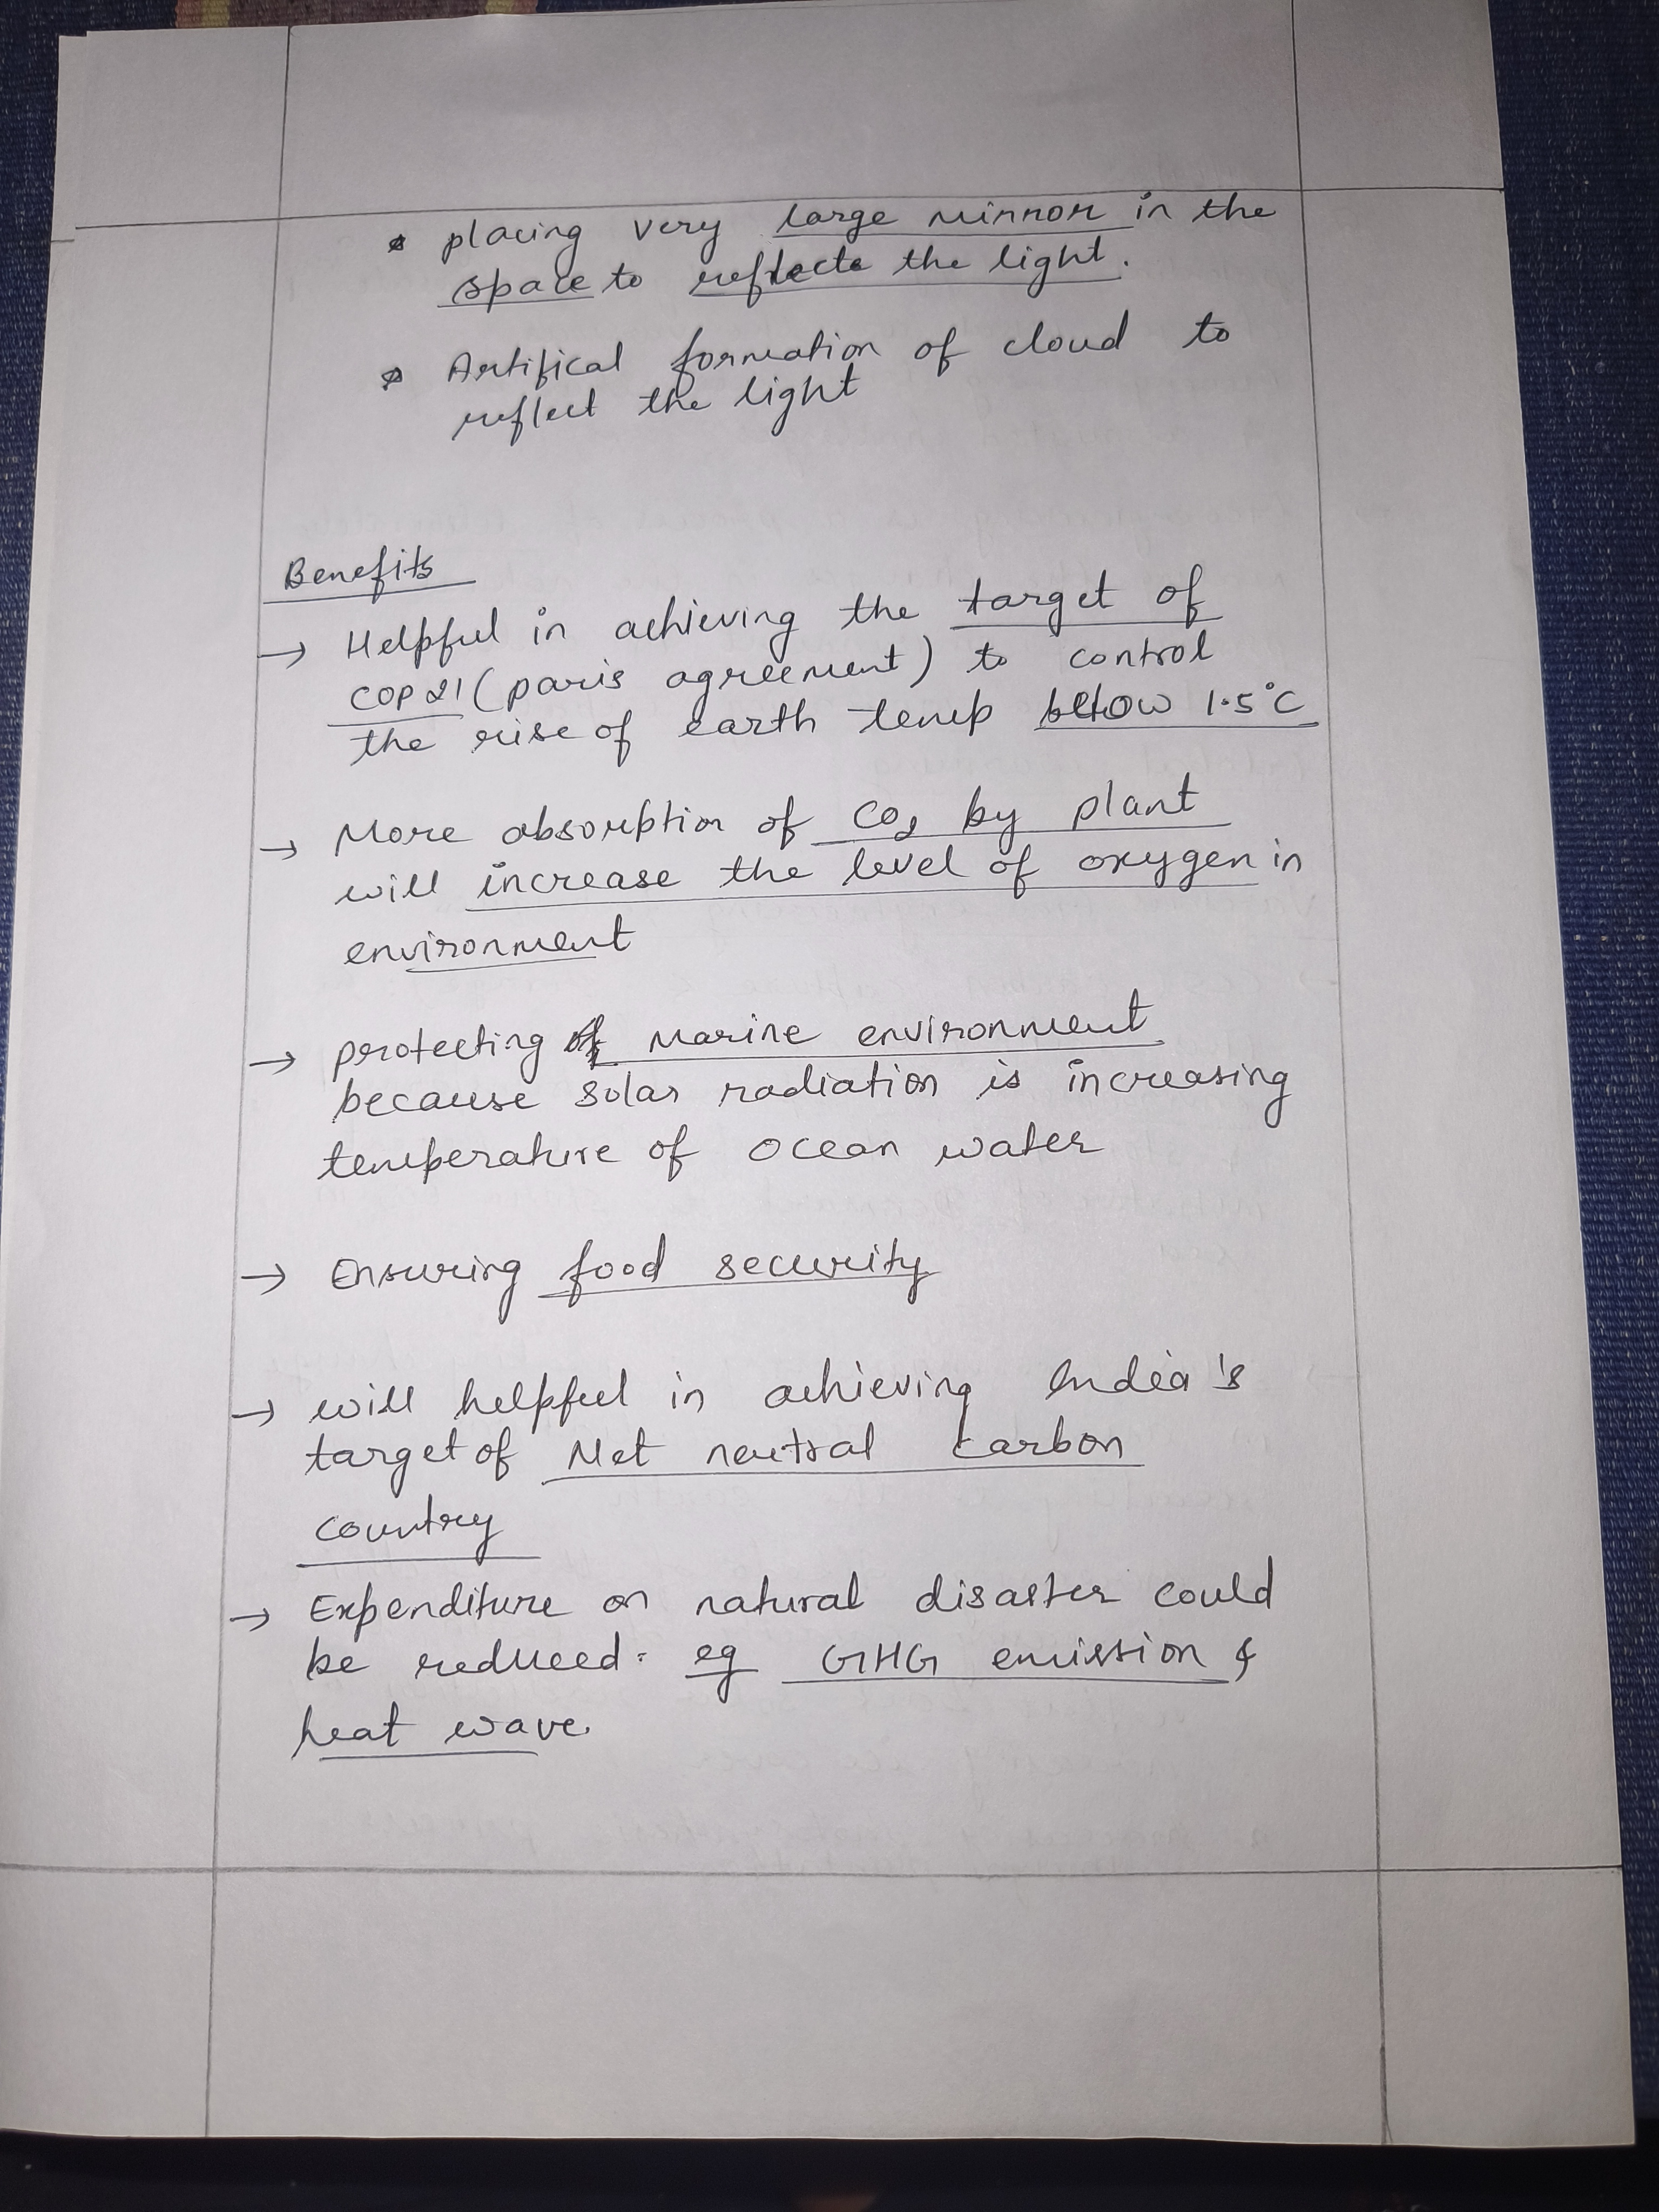 * placing very large mirror in the
space to reflecte the light.
* Artifical formation of cloud to
reflect the light
Benefits
→ Helpful in achieving the target of
COP 21 (paris agreement) to control
the rise of earth temp below 1.5°C
→ More absorption of CO2 by plant
will increase the level of oxygen in
environment
→ protecting of Marine environment
because solar radiation is increasing
temperature of ocean water
→ Ensuring food security
→ will helpful in achieving India's
target of Net neutral carbon
country
→ Expenditure on natural disaster could
be reduced. eg GHG emission &
heat wave.